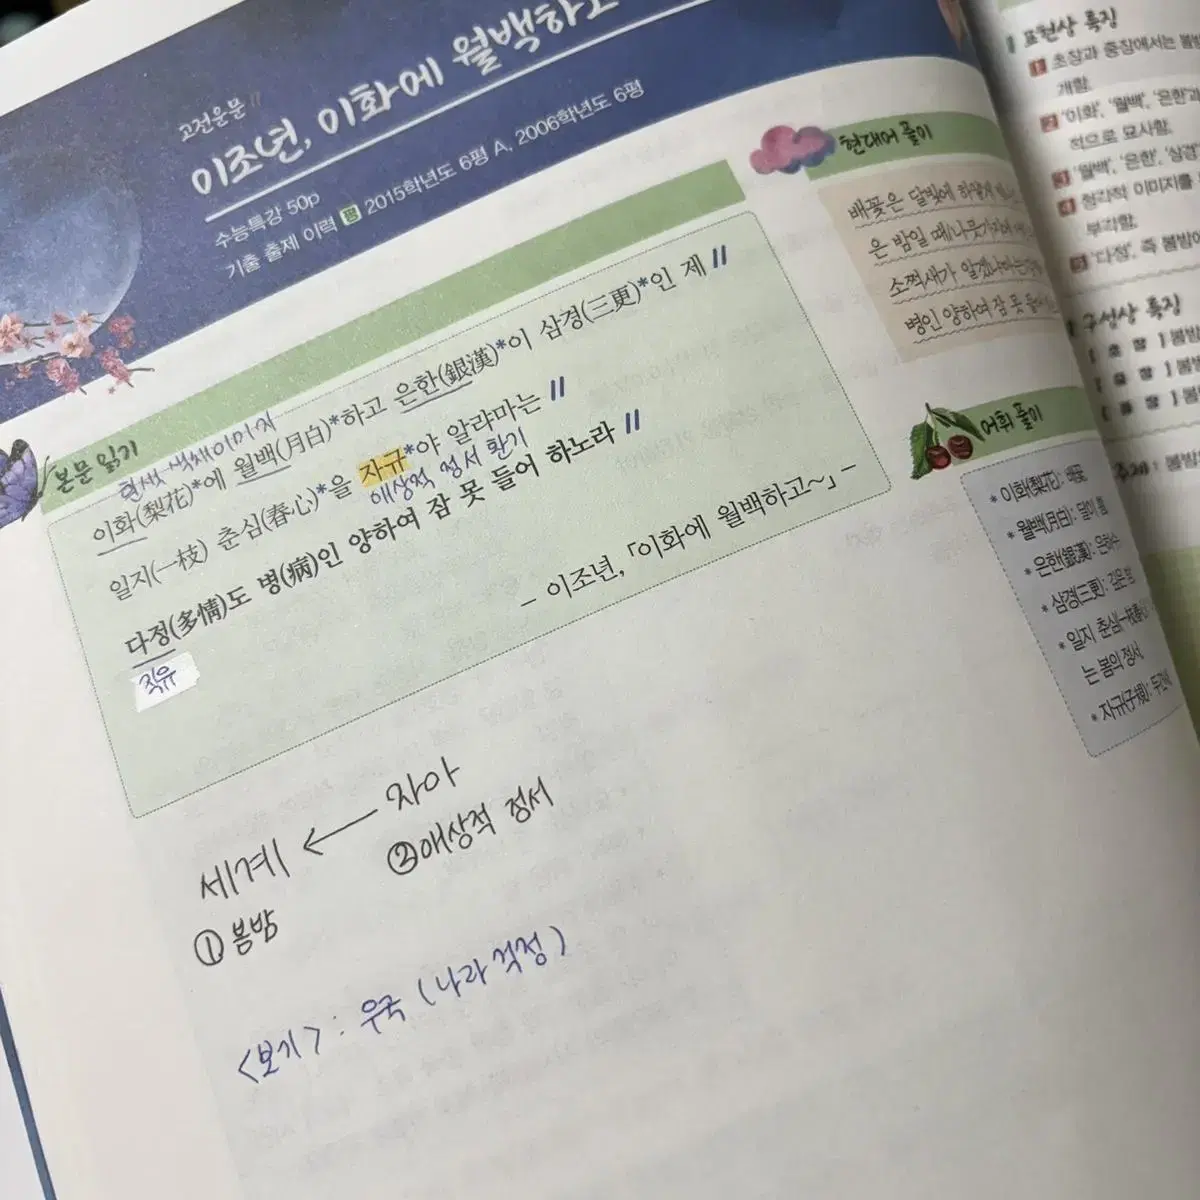 고전운문
이조년, 이화에 월백하고
수능특강 50p
기출 출제 이력 평 2015학년도 6평 A, 2006학년도 6평
본문 읽기
흰색 색채이미지
이화(梨花)*에 월백(月白)*하고 은한(銀漢)*이 삼경(三更)*인 제 //
일지(一枝) 춘심(春心)*을 자규*야 알랴마는 //
애상적 정서 환기
다정(多情)도 병(病)인 양하여 잠 못 들어 하노라 //
직유
- 이조년, 「이화에 월백하고~」 -
세계 ← 자아
① 봄밤
② 애상적 정서
<보기> : 우국 (나라 걱정)
현대어 풀이
배꽃은 달빛에 하얗게
은 밤일 때 나뭇가지에
소쩍새가 알겠냐마는
병인 양하여 잠 못 들어
어휘 풀이
* 이화(梨花): 배꽃
* 월백(月白): 달이
* 은한(銀漢): 은하수
* 삼경(三更): 깊은 밤
* 일지 춘심(一枝春心)
는 봄의 정서
* 자규(子規): 두견
표현상 특징
1 초장과 중장에서는 봄밤
개함.
2 '이화', '월백', '은한'과
적으로 묘사함.
3 '월백', '은한', '삼경'
4 청각적 이미지를
부각함.
5 '다정', 즉 봄밤에
구성상 특징
[초장] 봄밤
[중장] 봄밤
[종장] 봄
주제 : 봄밤